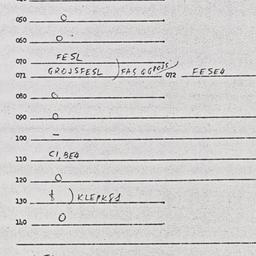 050 O
060 O
070 FESL
071 GROJSFESL ) FAS GGROJS 072 FESER
080 O
090 O
100 –
110 CI, BER
120 O
130 ) KLEPKES
140 O